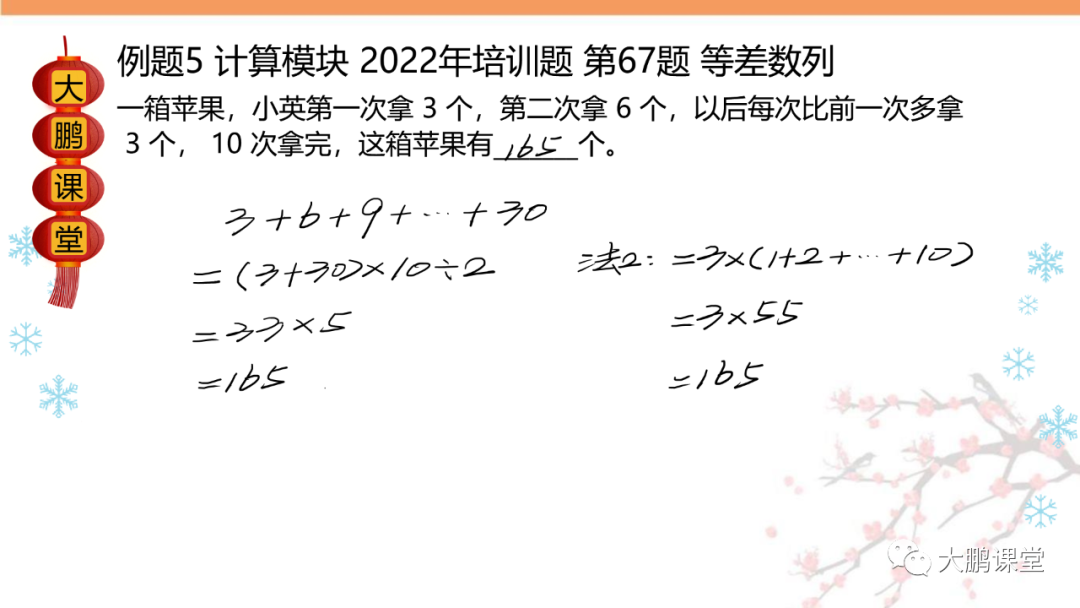 大鹏课堂
例题5 计算模块 2022年培训题 第67题 等差数列
一箱苹果，小英第一次拿 3 个，第二次拿 6 个，以后每次比前一次多拿
3 个， 10 次拿完，这箱苹果有 165 个。
3+6+9+…+30
=(3+30)×10÷2
=33×5
=165
法2: =3×(1+2+…+10)
=3×55
=165
大鹏课堂